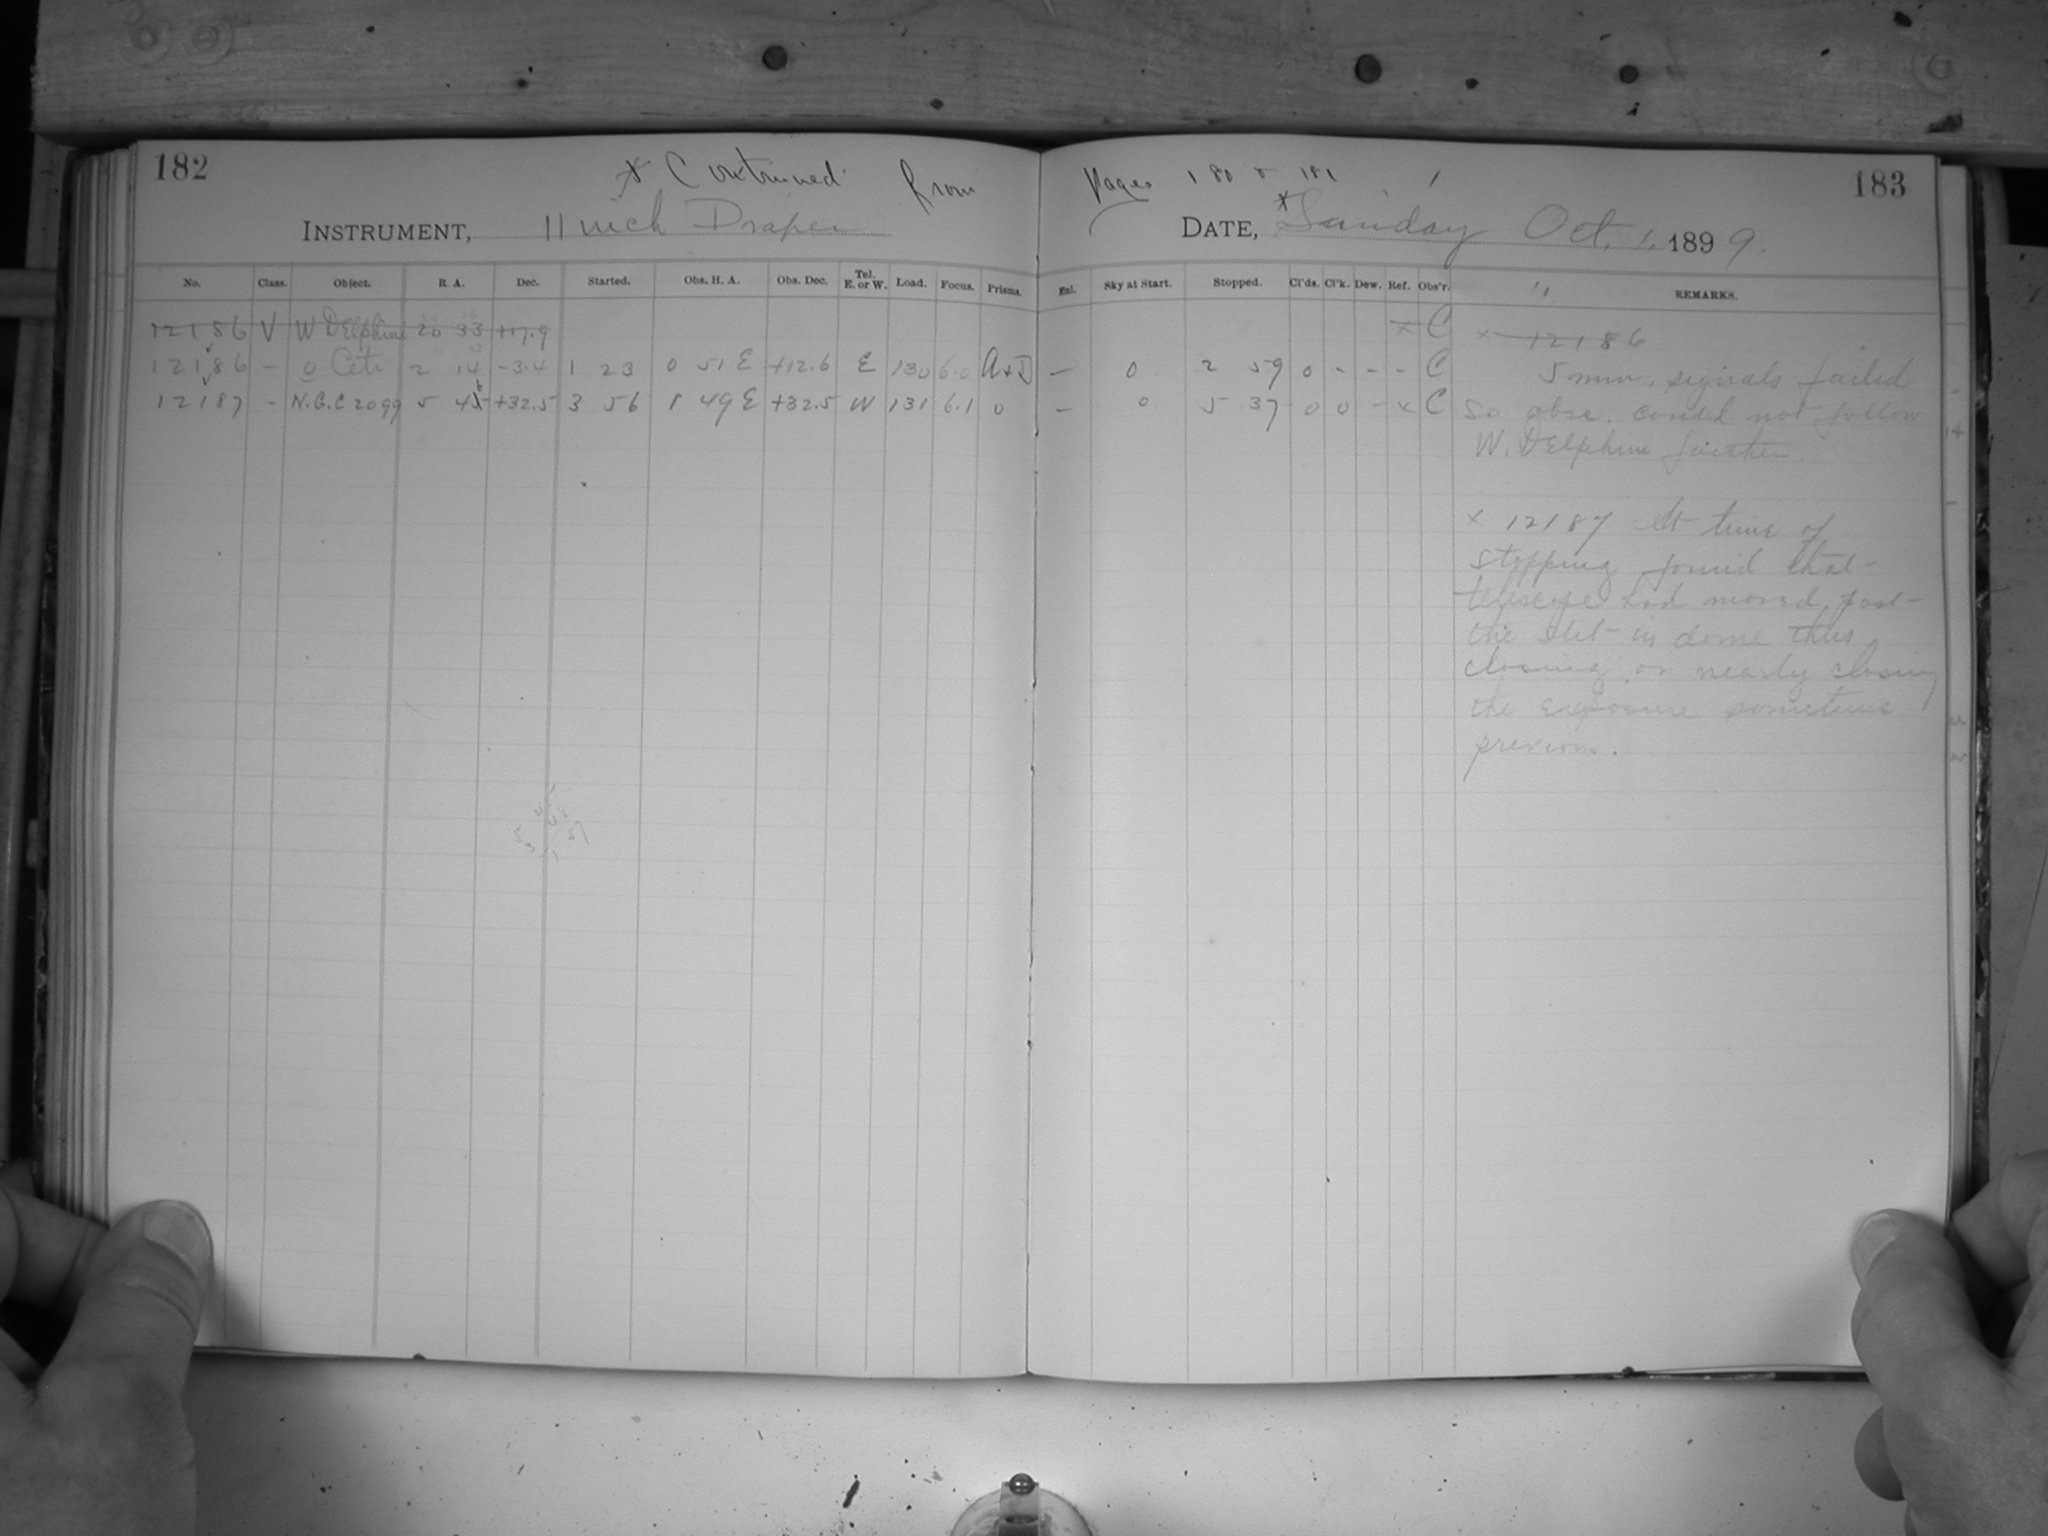 182
* Continued from Pages 180 & 181
183
INSTRUMENT, 11 inch Draper
DATE, * Sunday Oct. 1, 1899.
No. Class. Object. R. A. Dec. Started. Obs. H. A. Obs. Dec. Tel. E. or W. Load. Focus. Prisms. Enl. Sky at Start. Stopped. Cl'ds. Cl'k. Dew. Ref. Obs'r. REMARKS.
12186 V W Delphini 20 33 +17.9 x C x 12186
12186 - o Ceti 2 14 -3.4 1 23 0 51 E +12.6 E 130 6.0 A+D - 0 2 59 0 - - - C 5 min. signals failed
12187 - N.G.C 2099 5 46 +32.5 3 56 1 49 E +32.5 W 131 6.1 0 - 0 5 37 0 0 - x C so obsr. could not follow
W. Delphini further.
x 12187 At time of
stopping found that
telescope had moved past
the slit in dome thus
closing, or nearly closing
the exposure sometime
previous.